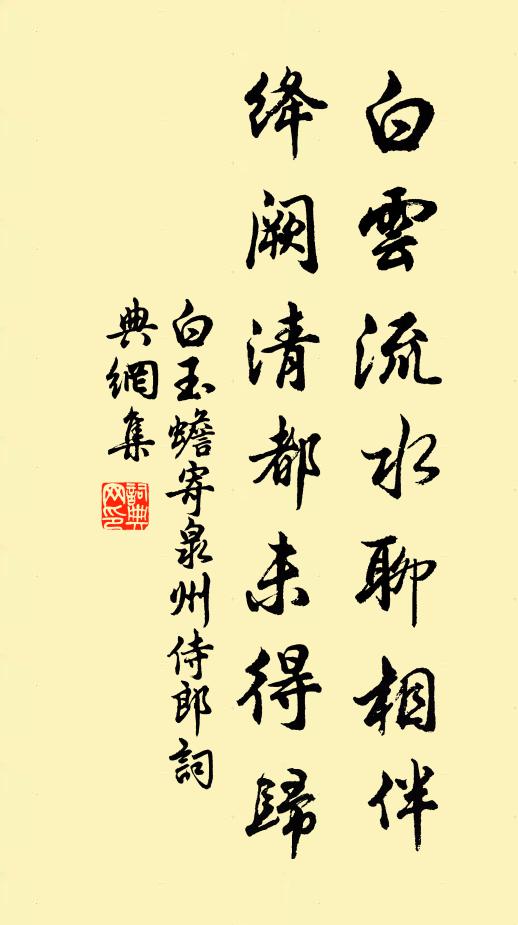 白雲流水聊相伴
絳阙清都未得歸
白玉蟾寄泉州侍郎詞
典網集
詞典
网印